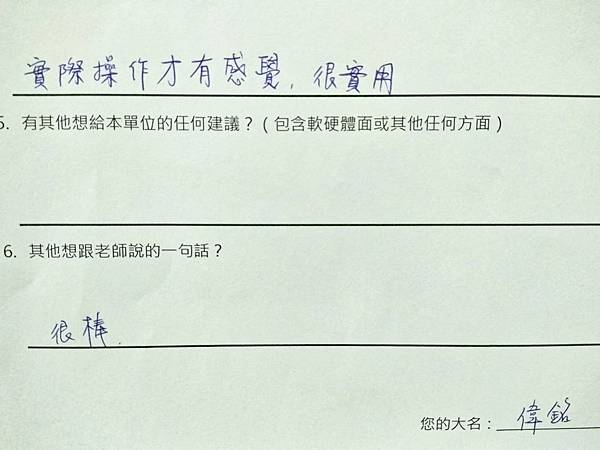 實際操作才有感覺, 很實用
5. 有其他想給本單位的任何建議？(包含軟硬體面或其他任何方面)
6. 其他想跟老師說的一句話？
很棒.
您的大名：偉銘